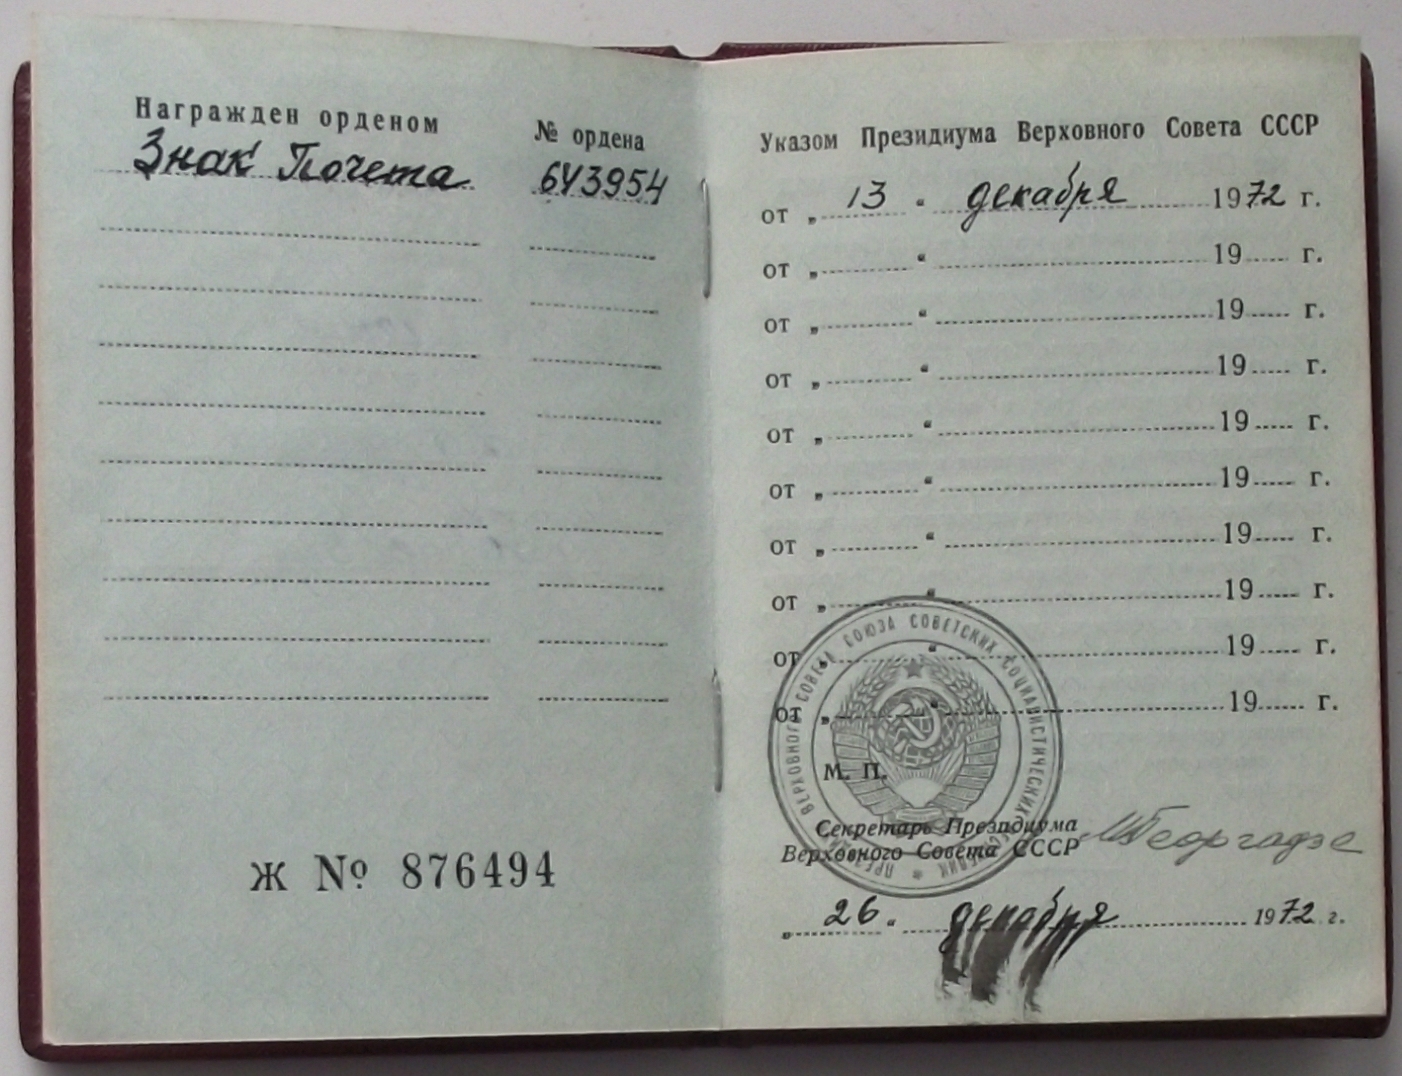 Награжден орденом № ордена
Знак Почета 643954
Ж № 876494
Указом Президиума Верховного Совета СССР
от „ 13 “ декабря 1972 г.
от „ “ 19 г.
от „ “ 19 г.
от „ “ 19 г.
от „ “ 19 г.
от „ “ 19 г.
от „ “ 19 г.
от „ “ 19 г.
от „ “ 19 г.
от „ “ 19 г.
ПРЕЗИДИУМ ВЕРХОВНОГО СОВЕТА СОЮЗА СОВЕТСКИХ СОЦИАЛИСТИЧЕСКИХ РЕСПУБЛИК *
М. П.
Секретарь Президиума
Верховного Совета СССР МГеоргадзе
„ 26 “ декабря 1972 г.